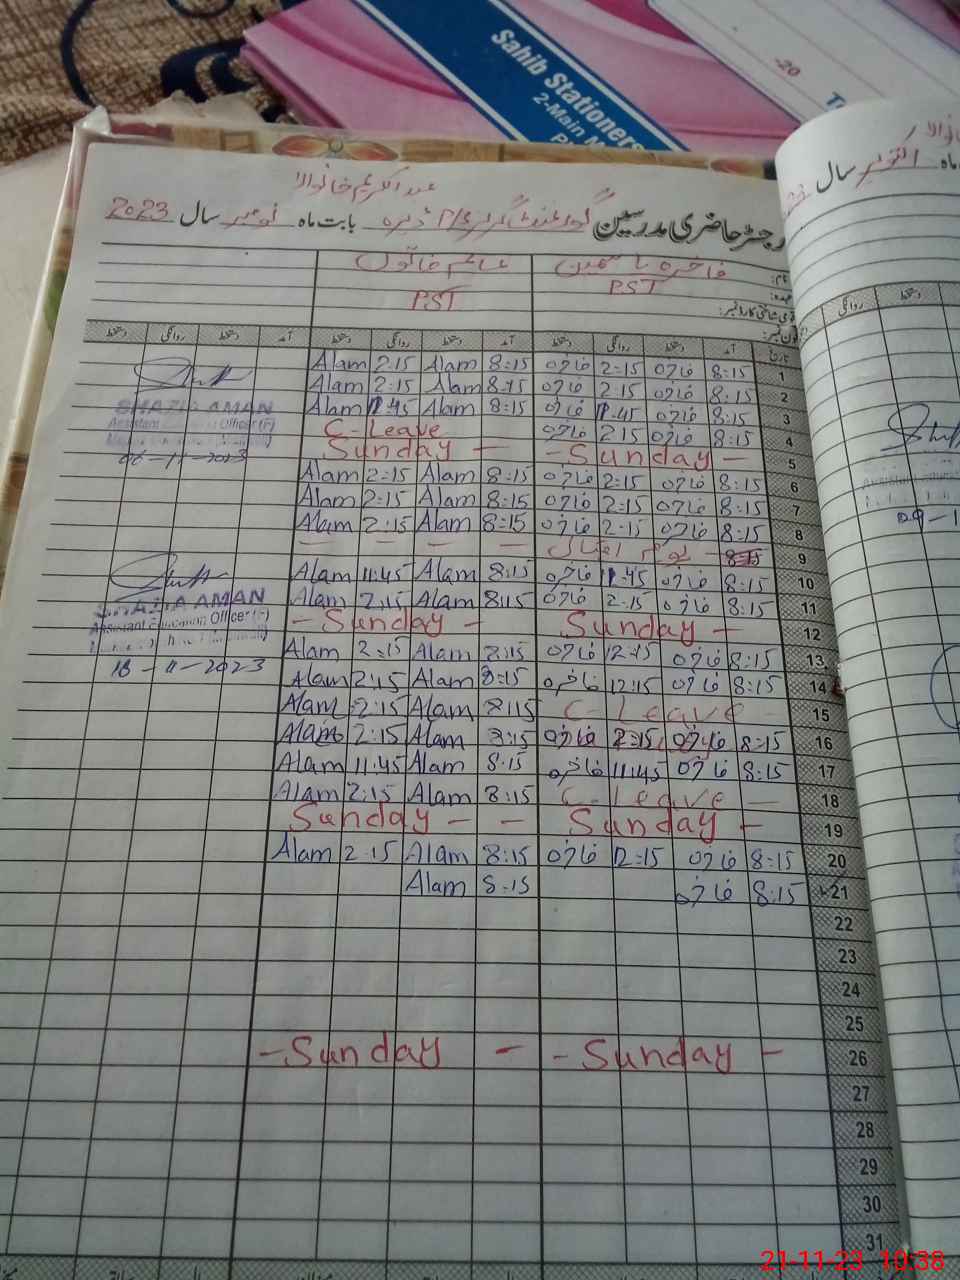 Sahib Stationers
2-Main
-20
رجسٹر حاضری مدرسین گورنمنٹ گرلز P/S ڈیرہ عبدالکریم خانوالا بابت ماہ نومبر سال 2023
ماہ اکتوبر سال
نام: فاخرہ یاسمین عالم خاتون
عہدہ: PST PST
تاریخ آمد دستخط روانگی دستخط آمد دستخط روانگی دستخط آمد دستخط روانگی دستخط
1 8:15 فاخرہ 2:15 فاخرہ 8:15 Alam 2:15 Alam
2 8:15 فاخرہ 2:15 فاخرہ 8:15 Alam 2:15 Alam
3 8:15 فاخرہ 11:45 فاخرہ 8:15 Alam 11:45 Alam
4 8:15 فاخرہ 2:15 فاخرہ C-Leave
5 - Sunday - Sunday -
6 8:15 فاخرہ 2:15 فاخرہ 8:15 Alam 2:15 Alam
7 8:15 فاخرہ 2:15 فاخرہ 8:15 Alam 2:15 Alam
8 8:15 فاخرہ 2:15 فاخرہ 8:15 Alam 2:15 Alam
9 یوم اقبال - - - -
10 8:15 فاخرہ 11:45 فاخرہ 8:15 Alam 11:45 Alam
11 8:15 فاخرہ 2:15 فاخرہ 8:15 Alam 2:15 Alam
12 Sunday - - Sunday -
13 8:15 فاخرہ 12:15 فاخرہ 8:15 Alam 2:15 Alam
14 8:15 فاخرہ 12:15 فاخرہ 8:15 Alam 2:15 Alam
15 C-Leave - 8:15 Alam 2:15 Alam
16 8:15 فاخرہ 2:15 فاخرہ 8:15 Alam 2:15 Alam
17 8:15 فاخرہ 11:45 فاخرہ 8:15 Alam 11:45 Alam
18 C-Leave - 8:15 Alam 2:15 Alam
19 Sunday - Sunday - -
20 8:15 فاخرہ 12:15 فاخرہ 8:15 Alam 2:15 Alam
21 8:15 فاخرہ 8:15 Alam
22
23
24
25
26 - Sunday - - Sunday -
27
28
29
30
31
SHAZIA AMAN
Assistant Education Officer (F)
06-11-2023
SHAZIA AMAN
Assistant Education Officer (F)
18-11-2023
21-11-23 10:38